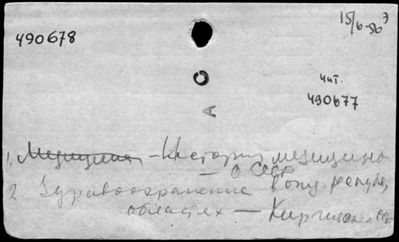 490678
15/6-56 Э
О
А
чит.
490677
1. Медицина - История медицины
О СССР
2. Здравоохранение в опуд. республ,
областях — Киргизская ССР